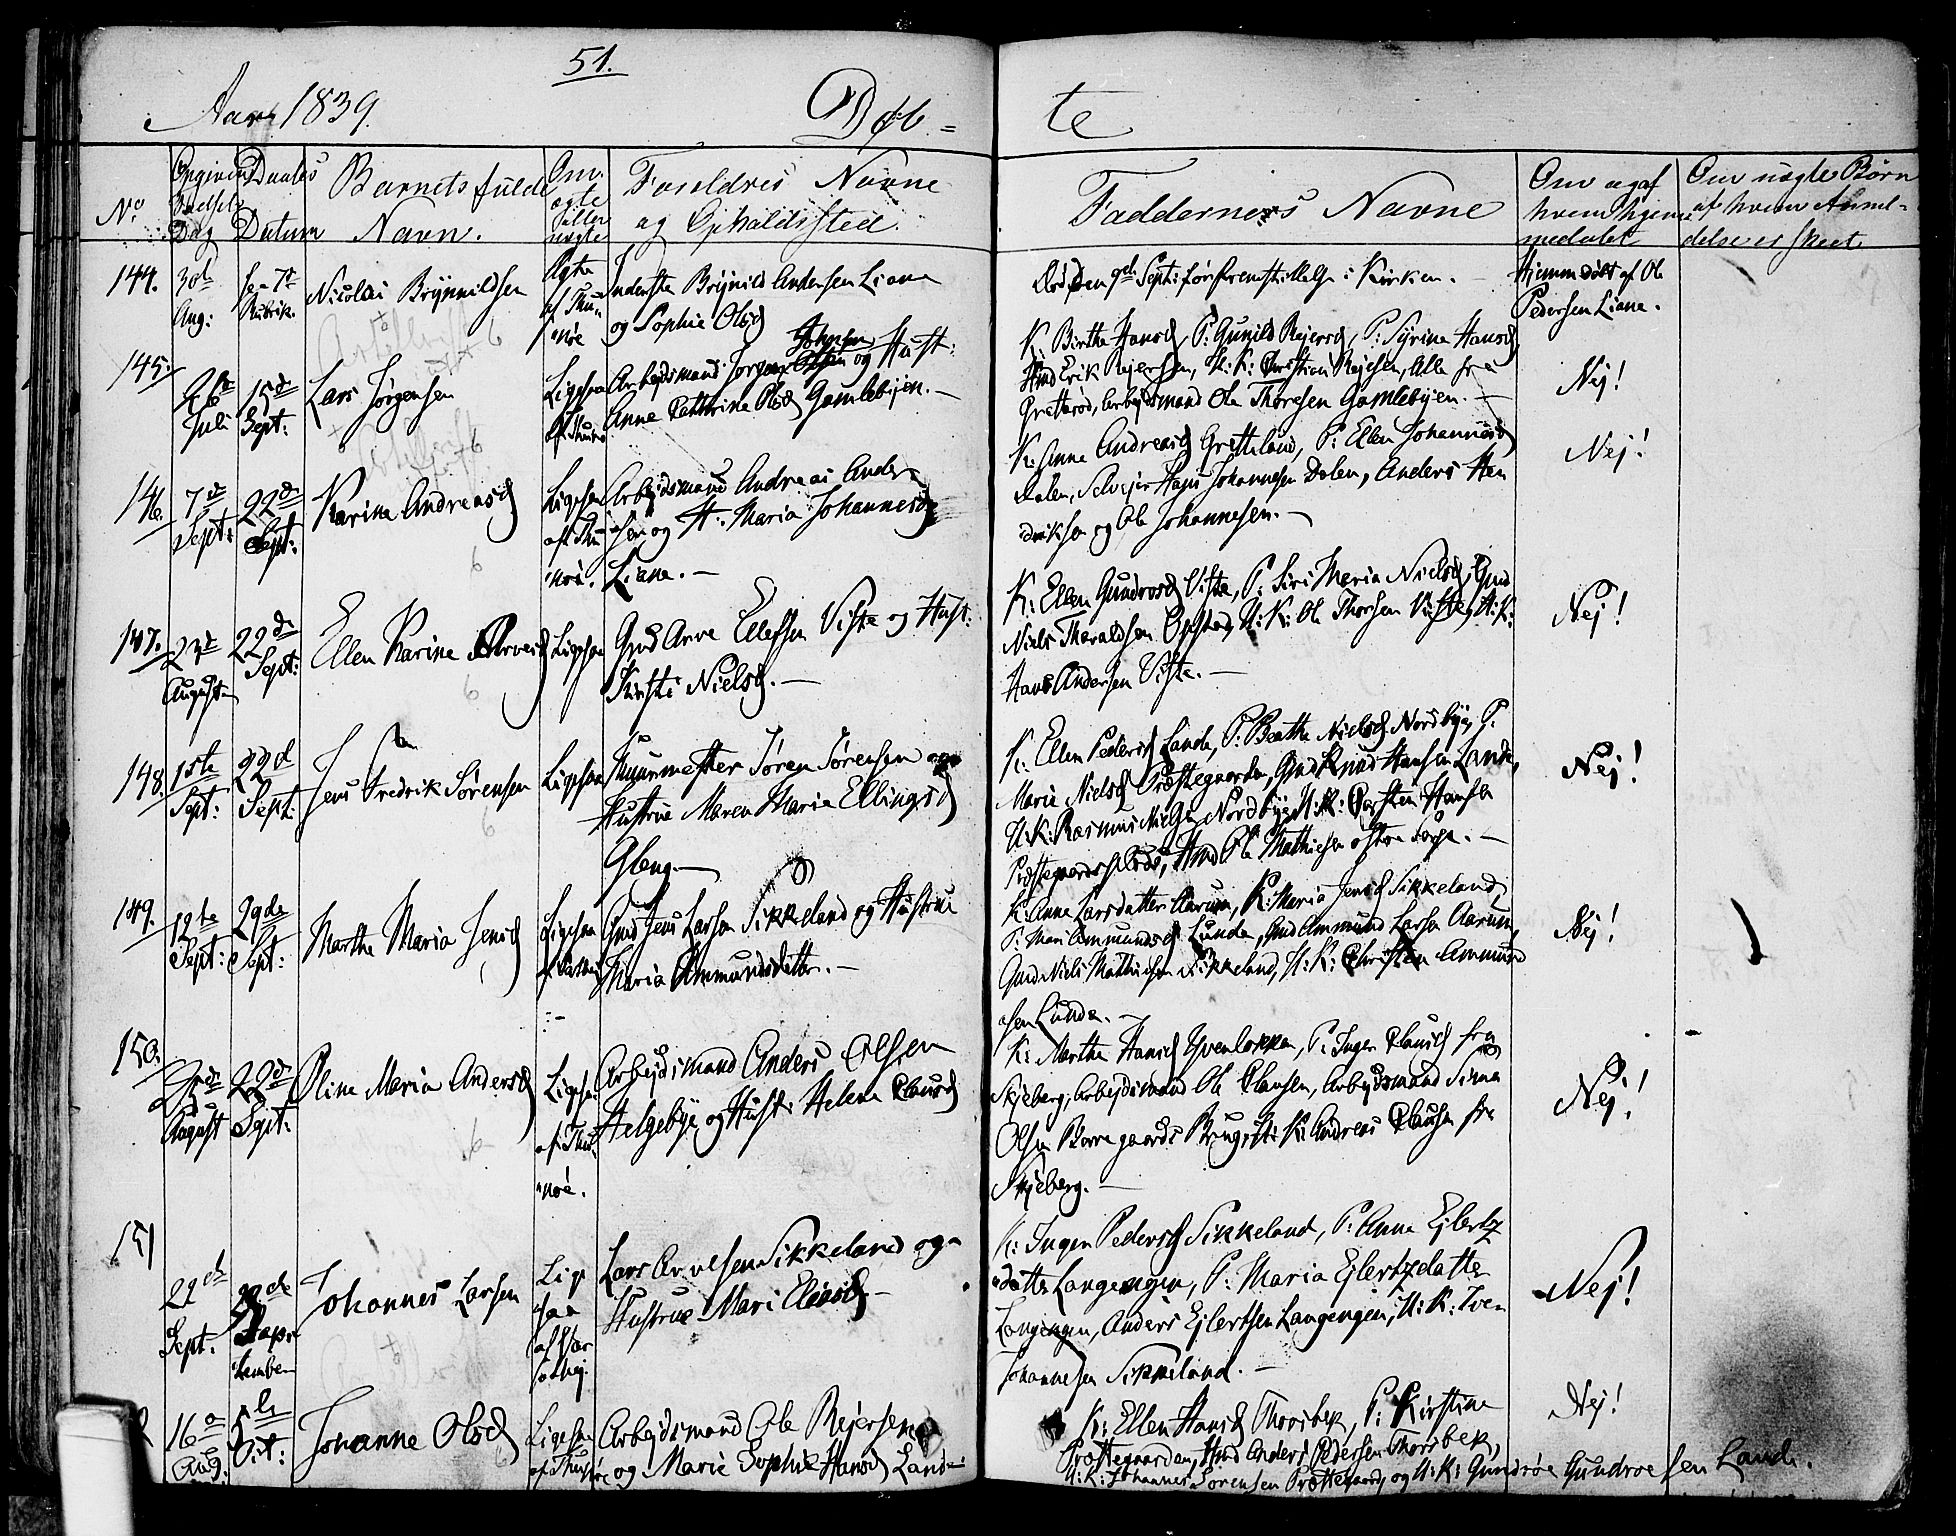 51.
Aar 1839. Døb- te
No
Opgiven Fødsels Dag
Daabs Datum
Barnets fulde Navn.
Om ægte eller uægte
Forældres Navne og Opholdssted.
Faddernes Navne
Om og af hvem hjemmedøbt
Om uægte Børn af hvem Anmeldelse er skeet
144. 30te Aug:
Nicolai Brynnildsen
Ægte
Inderste Brynild Andersen Liane
og Sophie Olsd
Død den 9de Sept: før Fremstillelse i Kirken.
Hjemmedøbt af Ole
Pedersen Liane.
145. 26de Juli
15de Sept:
Lars Jørgensen
Ligesaa
Arbejdsmand Jørgen Johnsen og Hust:
Anne Cathrine Olsd Gamlebyen.
K: Birthe Hansd, P: Gunild Rejersd, P: Syrine Hansd
Erik Rejersen, U: K: Christian Rejersen, Alle fra
Grettesrod, Arbejdsmand Ole Thoresen Gamlebyen.
Nej!
146. 7de Sept:
22de Sept:
Karine Andreasd
Ligesaa
Arbejdsmand Andreas Ander-
sen og H: Maria Johannesd
Liane.
K: Anne Andreasd Gretteland, P: Ellen Johannesd
Dalen, Selvejer Hans Johannesen Dalen, Anders Hen
driksen og Ole Johannesen.
Nej!
147.
August
22de Sept:
Ellen Karine Arvesd
Ligesaa
Gmd Arve Ellefsen Viste og Hust:
Kirsti Nielsd.
K: Ellen Gundrosd Viste, P: Siri Maria Nielsd, Gmd
Niels Tharaldsen Opstad, U: K: Ole Thorsen Viste, U: K:
Hans Andersen Viste.
Nej!
148. 1ste Sept:
22d Sept:
Jens Fredrik Sørensen
Ligesaa
Muurmester Søren Sørensen og
Hustrue Maren Maria Ellingsd
Gleng
K: Ellen Pedersd Lande, P: Beathe Nielsd Nordbye, P:
Marie Nielsd Præstegaarden, Gmd Knud Hansen Lande,
U: K: Rasmus Nielsen Nordbye, U: K: Carsten Hansen
Ole Mathiesen
Nej!
149. 12te Sept:
29de Sept:
Marthe Maria Jensd
Ligesaa
Gmd Jens Larsen Sikkeland og Hustrue
Maria Ammundsdatter.
K: Anne Larsdatter Aarum, P: Maria Jensd Sikkeland,
P: Mari Ammundsd Lunde, Gmd Ammund Larsen Aarum,
Gmd Niels Mathiesen Sikkeland, U: K: Christen Ammund
sen Lunde.
Nej!
150.
August
22de Sept:
Oline Maria Andersd
Ligesaa
Arbejdsmand Anders Olsen
Helgebye og Hust: Helene Clausd
K: Marthe Hansd Yvenløkken, P: Inger Clausd fra
Skjeberg, Arbejdsmand Ole Clausen, Arbejdsmand Simen
Olsen Borregaards Brug, U: K: Andreas Clausen fra
Skjeberg.
Nej!
151
Sept:
Septembe
Johannes Larsen
Ligesaa
Lars Arvesen Sikkeland og
Hustrue Mari Eliasd
K: Inger Pedersd Sikkeland, P: Anne Ejlertz
datter Langengen, P: Maria Ejlertzdatter
Langengen, Anders Ejlertsen Langengen, U: K: Iver
Johannesen Sikkeland.
Nej!
16de Aug:
5te Oct:
Johanne Olsd
Ligesaa
Arbejdsmand Ole Rejersen
og Marie Sophie Hansd Lande
K: Ellen Hansd Thorsbek, P: Kirstine
Prættegaarden, Gmd Anders Pedersen Thorsbek,
U: K: Johannes Sørensen Prættegaard, og U: K: Gundroe Gundroesen Lande.
Nej!